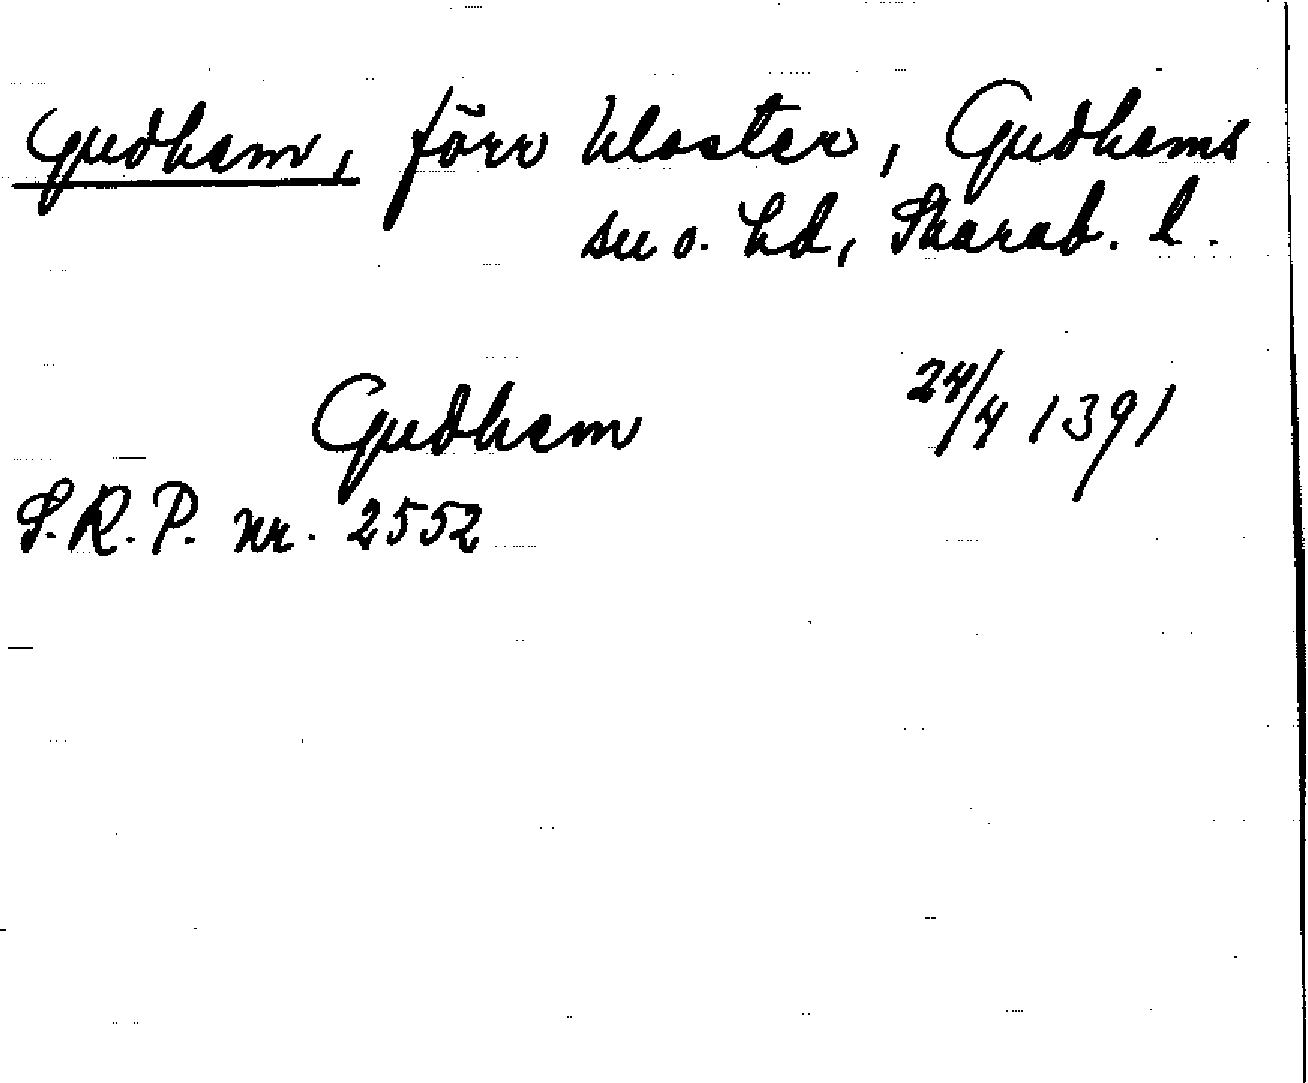 Gudhem, förr kloster, Gudhems
sn o. hd, Skarab. l.
Gudhem 24/4 1391
S.R.P. nr. 2552